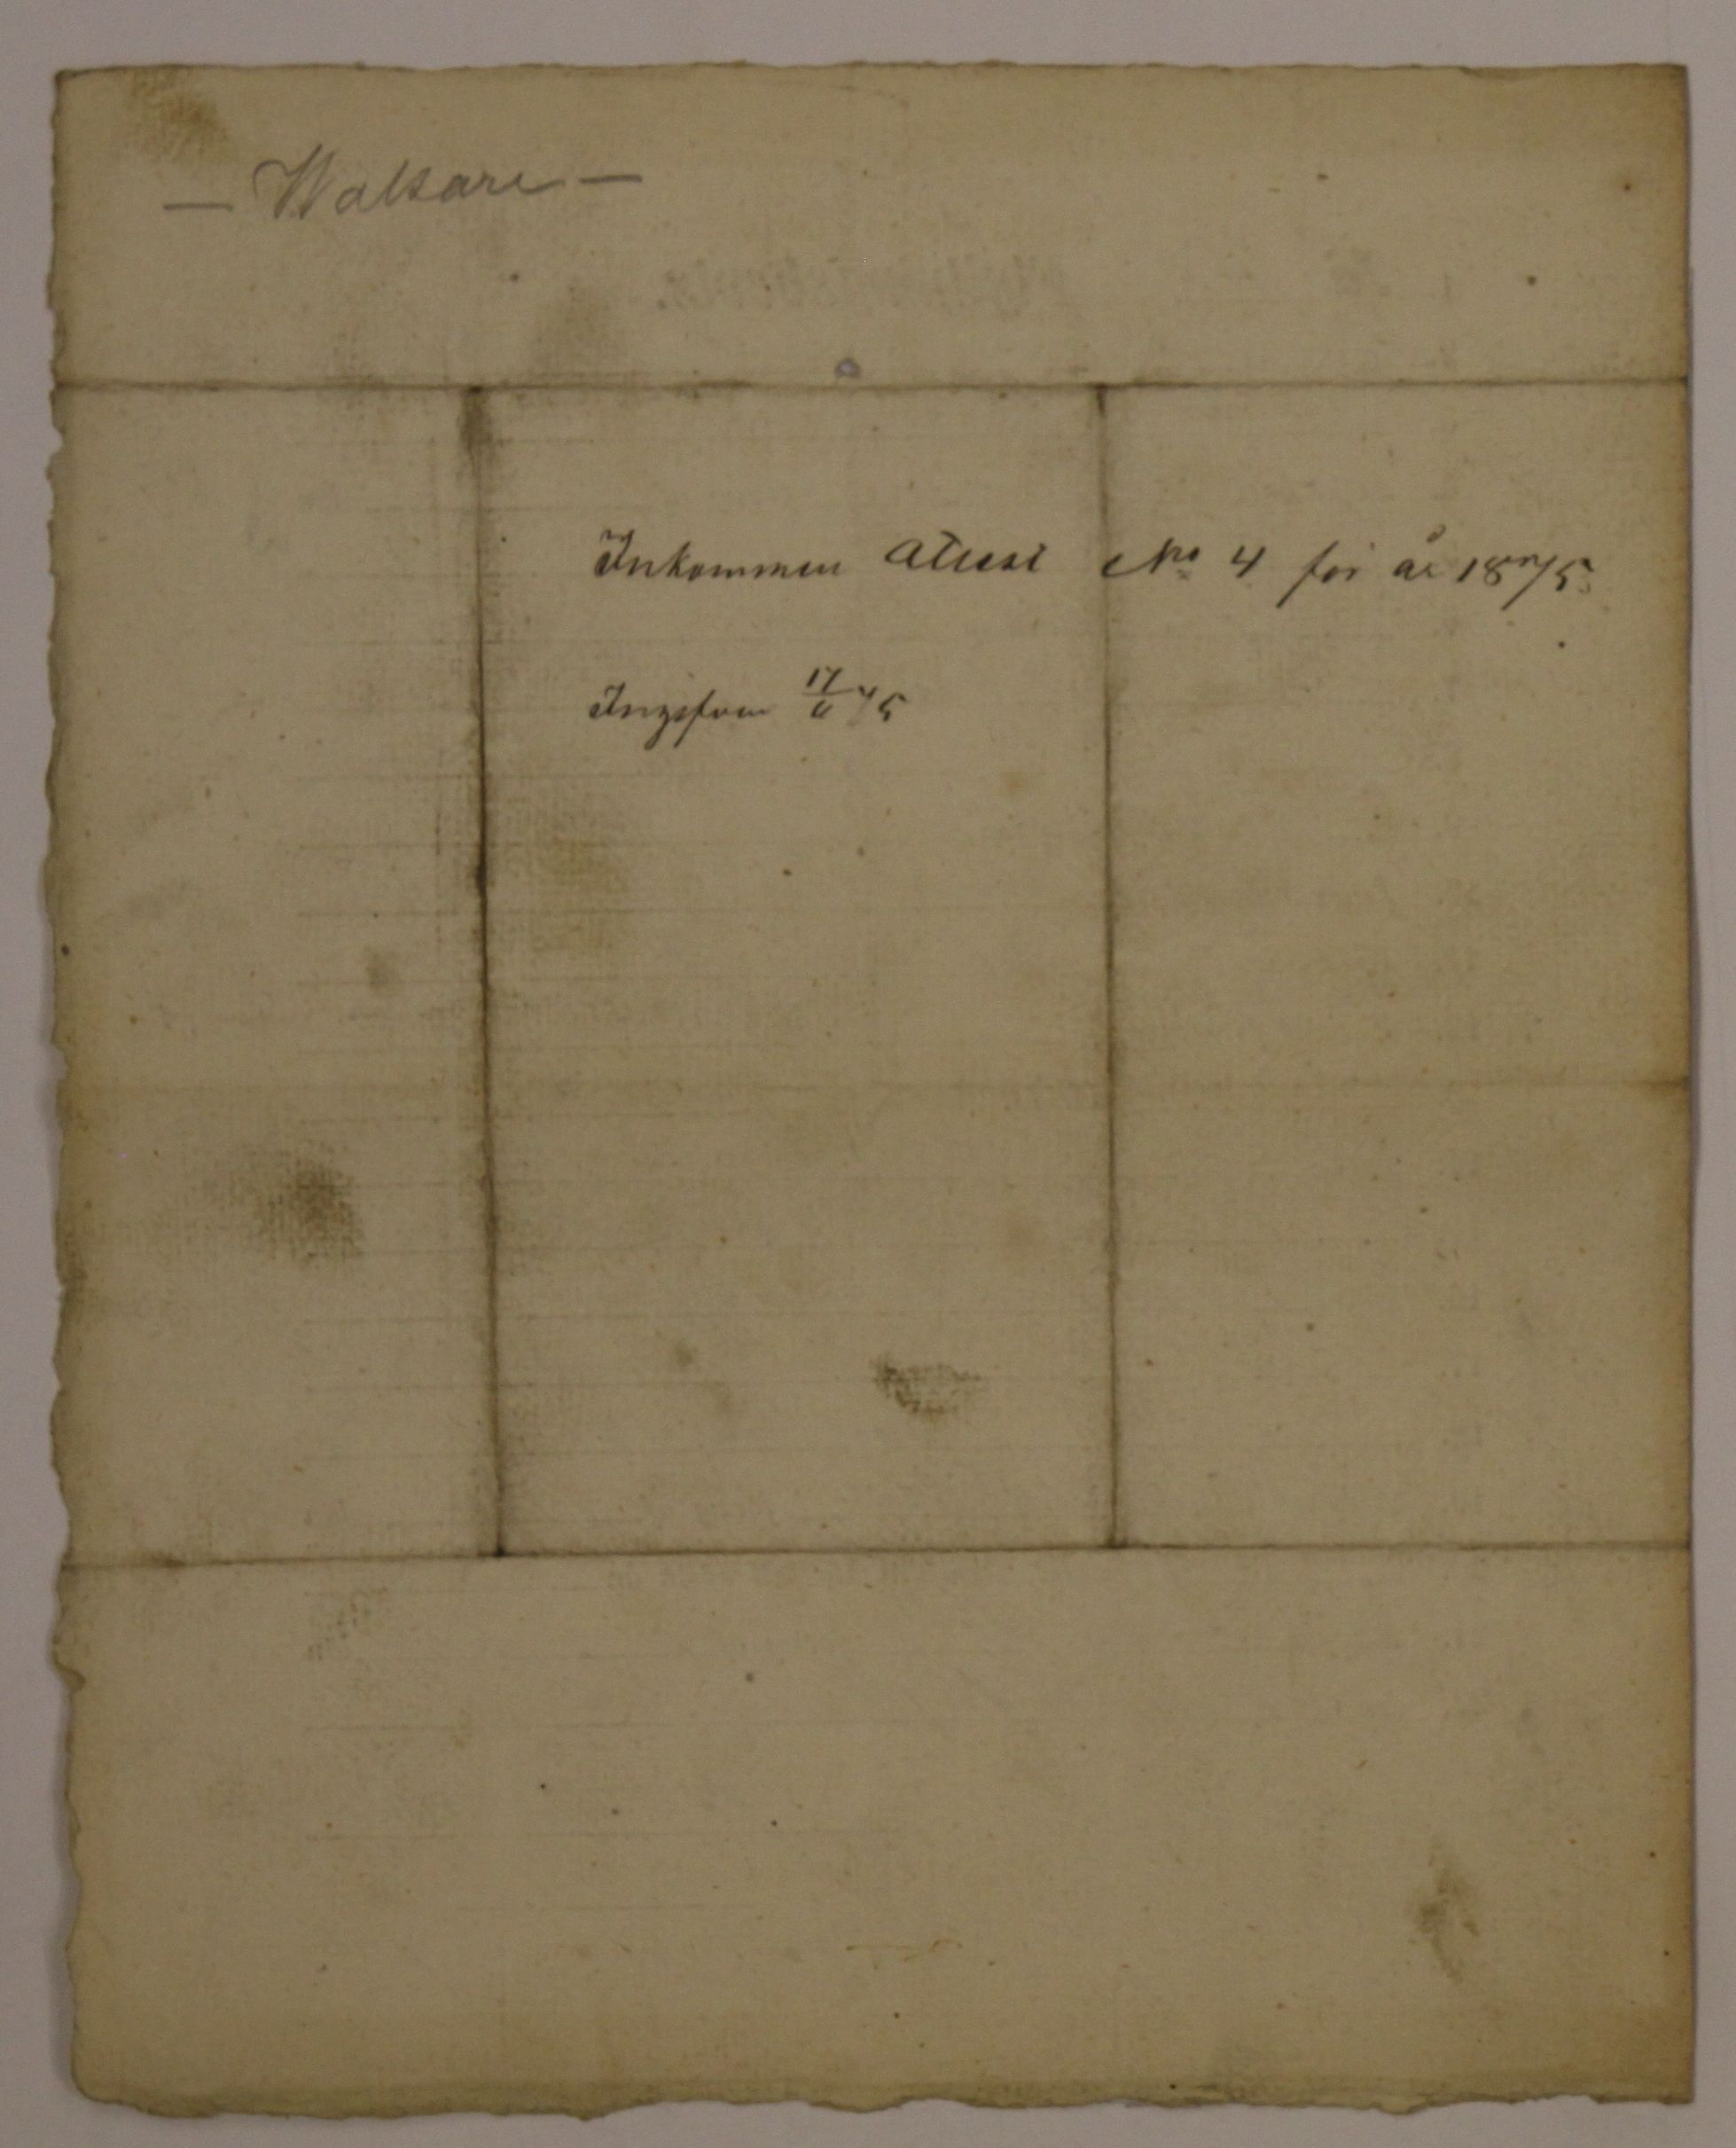 — Walsare —
Inkommen Attest No 4 för år 18 75.
17/6 75